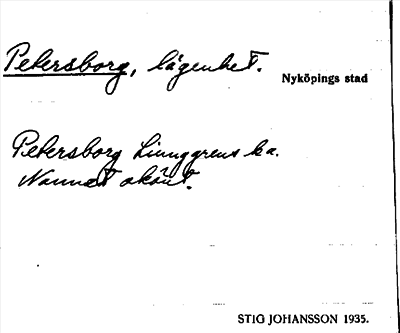 Petersborg, lägenhet.
Nyköpings stad
Petersborg Linnggrens ka.
Namnet okänt.
STIG JOHANSSON 1935.